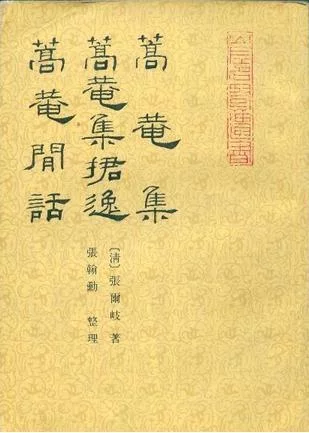 山左名賢遺書
蒿菴集
蒿菴集捃逸
蒿菴閒話
〔清〕張爾岐 著
張翰勳 整理